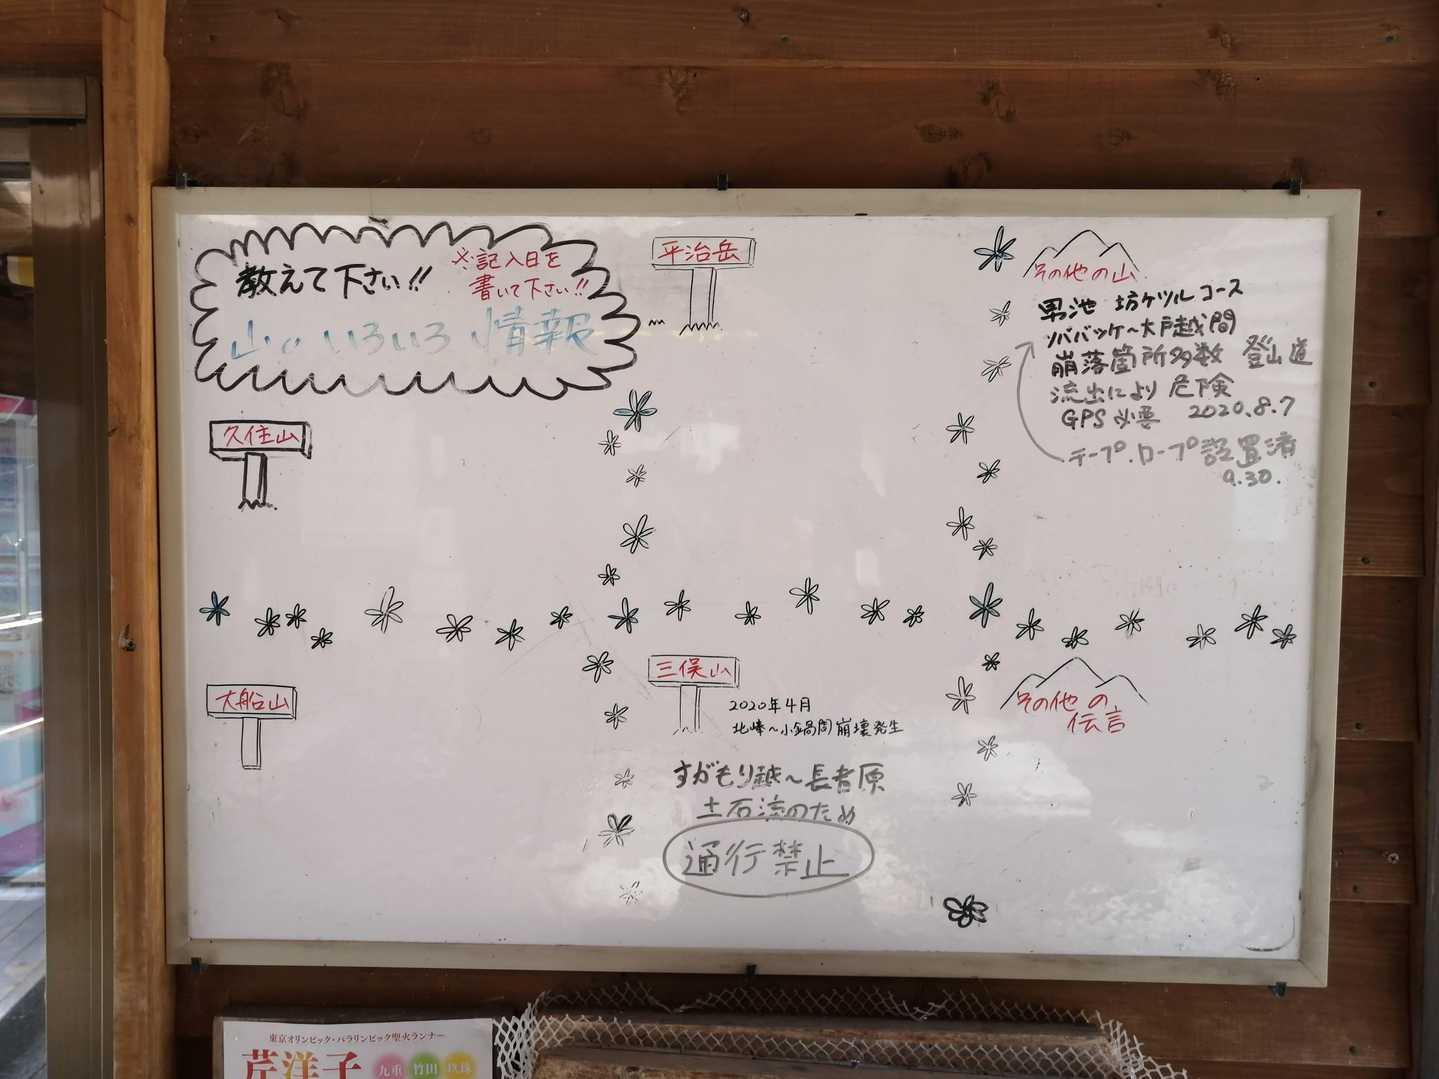 教えて下さい!!
※記入日を
書いて下さい!!
山のいろいろ情報
平治岳
その他の山
男池 坊ガツルコース
ソババッケ～大戸越間
崩落箇所多数 登山道
流出により危険
GPS必要 2020.8.7
テープ.ロープ設置済
9.30.
久住山
大船山
三俣山
2020年4月
北峰～小鍋間崩壊発生
すがもり越～長者原
土石流のため
通行禁止
その他の
伝言
東京オリンピック・パラリンピック聖火ランナー
芹洋子
九重 竹田 玖珠